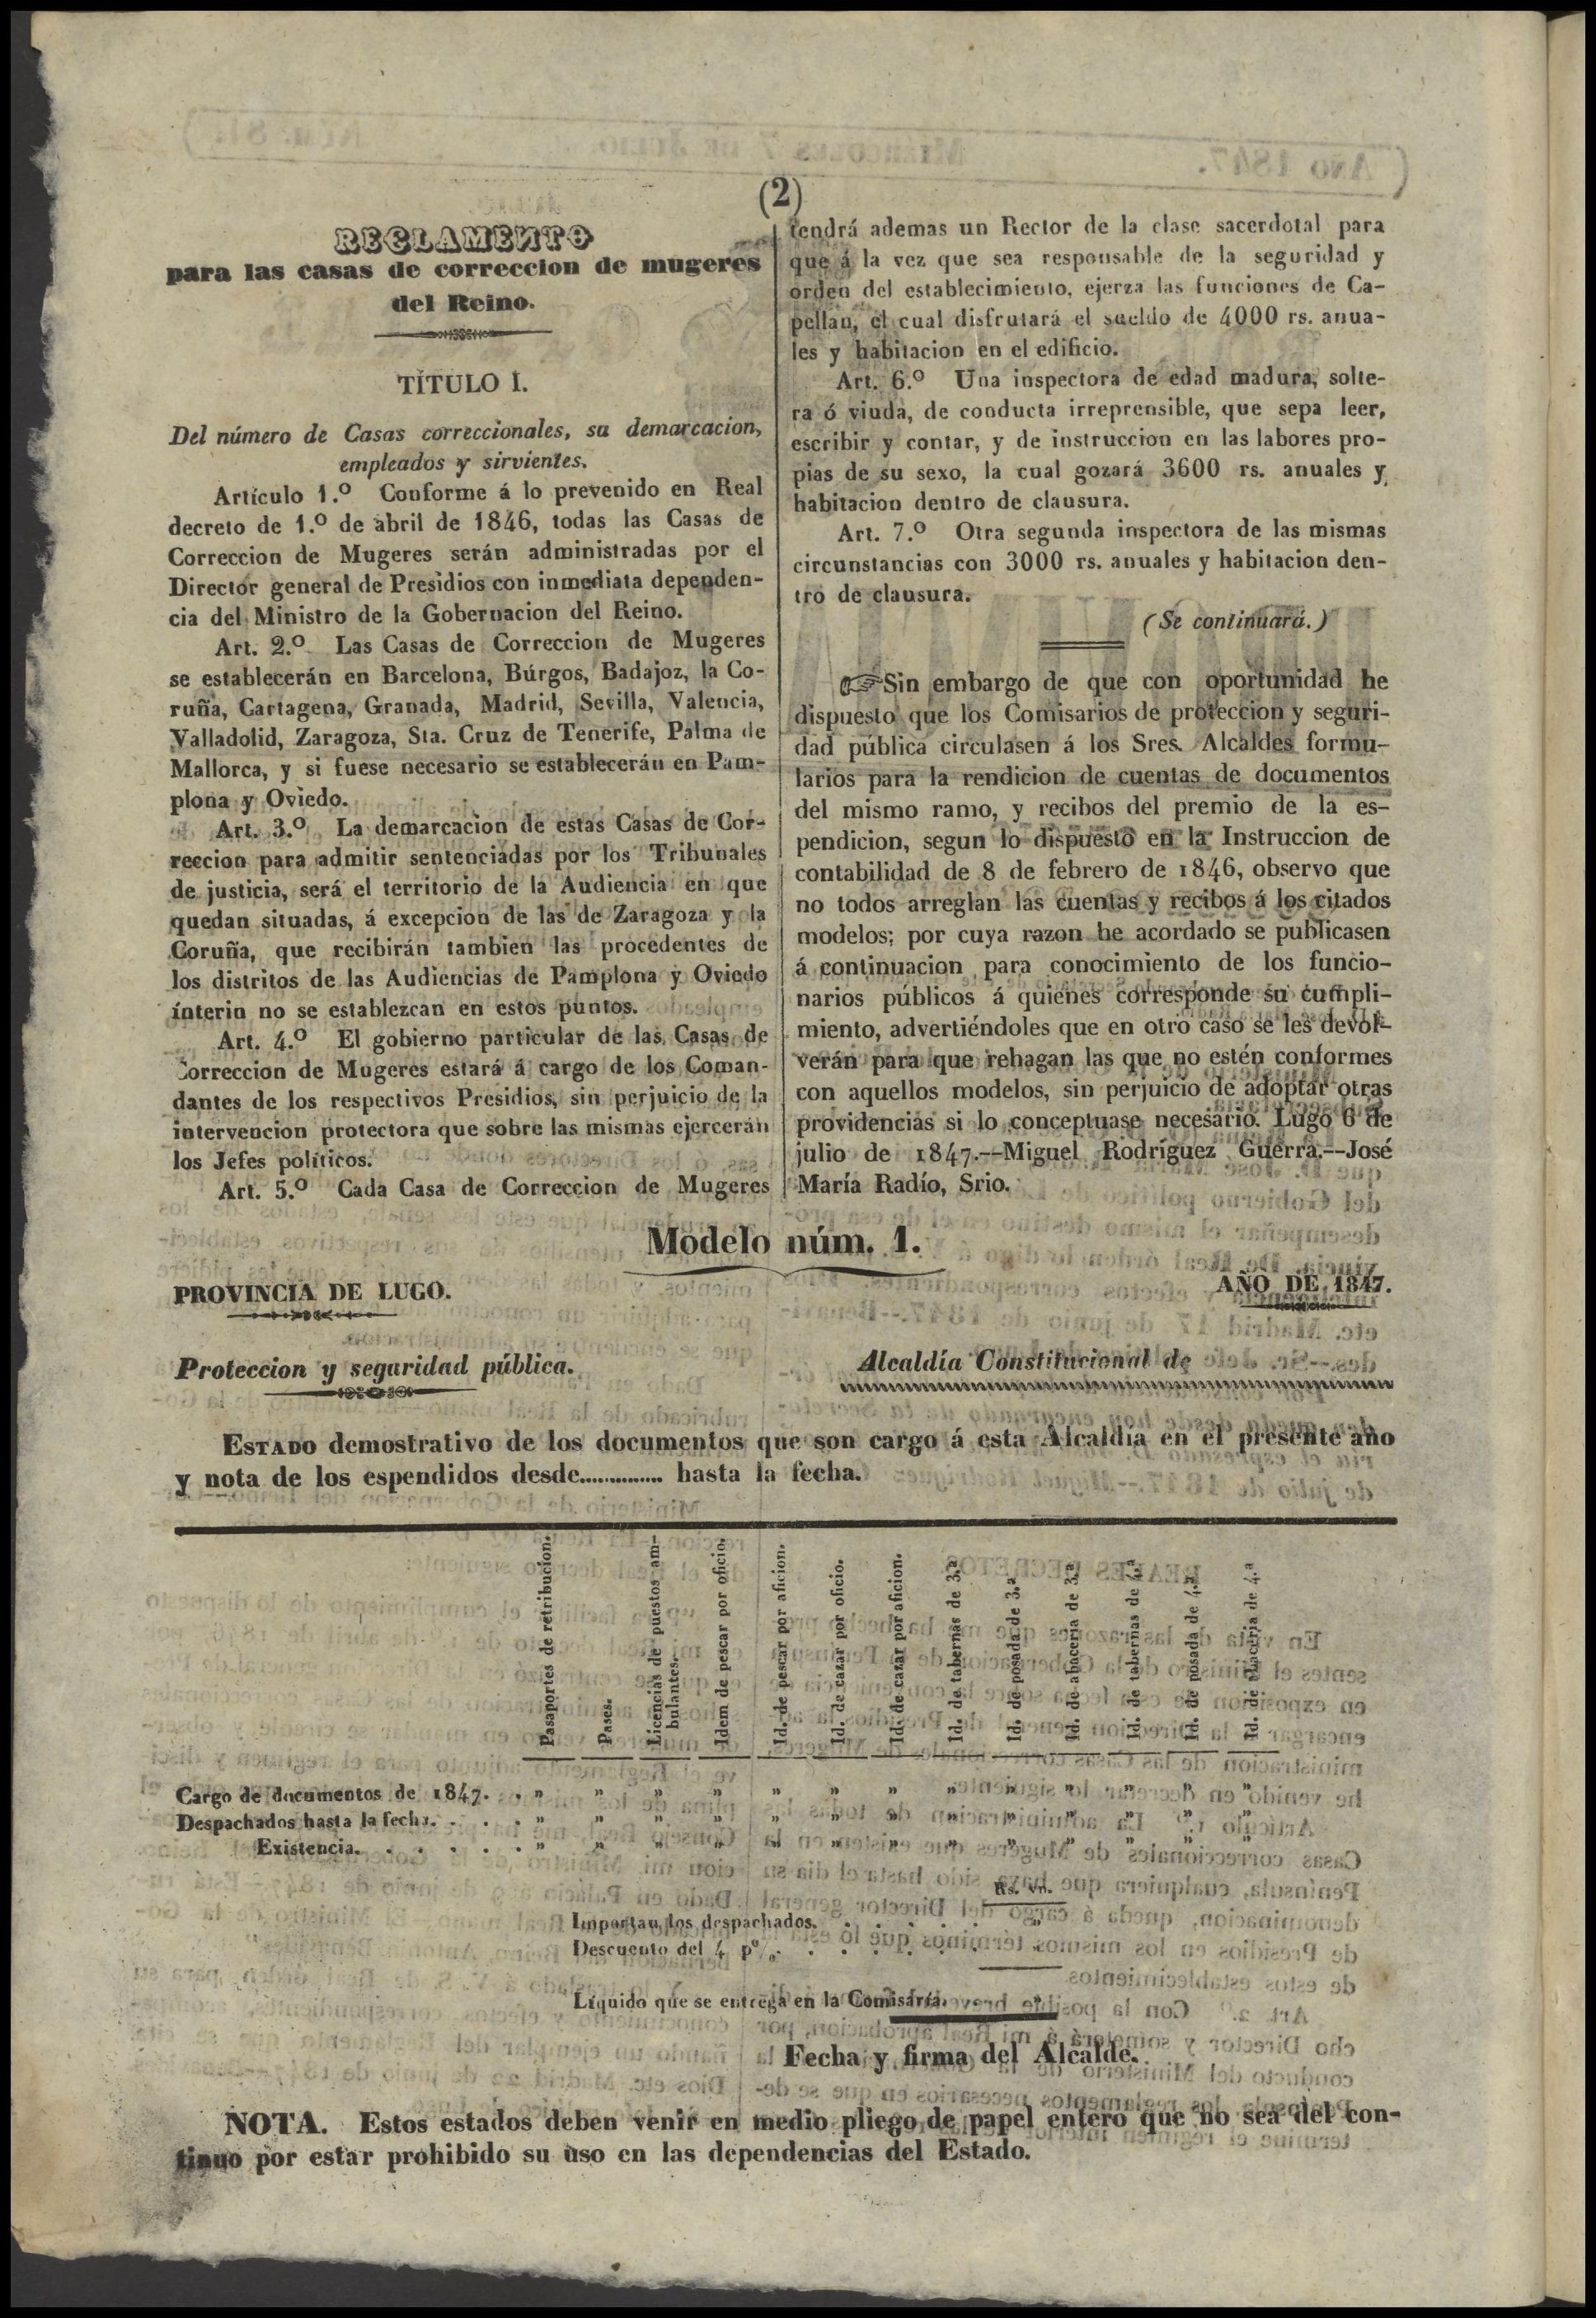 (2)
REGLAMENTO
para las casas de correccion de mugeres
del Reino.
TÍTULO I.
Del número de Casas correccionales, su demarcacion,
empleados y sirvientes.
Artículo 1.º Conforme á lo prevenido en Real
decreto de 1.º de abril de 1846, todas las Casas de
Correccion de Mugeres serán administradas por el
Director general de Presidios con inmediata dependen-
cia del Ministro de la Gobernacion del Reino.
Art. 2.º Las Casas de Correccion de Mugeres
se establecerán en Barcelona, Búrgos, Badajoz, la Co-
ruña, Cartagena, Granada, Madrid, Sevilla, Valencia,
Valladolid, Zaragoza, Sta. Cruz de Tenerife, Palma de
Mallorca, y si fuese necesario se establecerán en Pam-
plona y Oviedo.
Art. 3.º La demarcacion de estas Casas de Cor-
reccion para admitir sentenciadas por los Tribunales
de justicia, será el territorio de la Audiencia en que
quedan situadas, á excepcion de las de Zaragoza y la
Coruña, que recibirán tambien las procedentes de
los distritos de las Audiencias de Pamplona y Oviedo
ínterin no se establezcan en estos puntos.
Art. 4.º El gobierno particular de las Casas de
Correccion de Mugeres estará á cargo de los Coman-
dantes de los respectivos Presidios, sin perjuicio de la
intervencion protectora que sobre las mismas ejercerán
los Jefes políticos.
Art. 5.º Cada Casa de Correccion de Mugeres
tendrá ademas un Rector de la clase sacerdotal para
que á la vez que sea responsable de la seguridad y
orden del establecimiento, ejerza las funciones de Ca-
pellan, el cual disfrutará el sueldo de 4000 rs. anua-
les y habitacion en el edificio.
Art. 6.º Una inspectora de edad madura, solte-
ra ó viuda, de conducta irreprensible, que sepa leer,
escribir y contar, y de instruccion en las labores pro-
pias de su sexo, la cual gozará 3600 rs. anuales y
habitacion dentro de clausura.
Art. 7.º Otra segunda inspectora de las mismas
circunstancias con 3000 rs. anuales y habitacion den-
tro de clausura.
(Se continuará.)
☞Sin embargo de que con oportunidad he
dispuesto que los Comisarios de proteccion y seguri-
dad pública circulasen á los Sres. Alcaldes formu-
larios para la rendicion de cuentas de documentos
del mismo ramo, y recibos del premio de la es-
pendicion, segun lo dispuesto en la Instruccion de
contabilidad de 8 de febrero de 1846, observo que
no todos arreglan las cuentas y recibos á los citados
modelos; por cuya razon he acordado se publicasen
á continuacion para conocimiento de los funcio-
narios públicos á quienes corresponde su cumpli-
miento, advertiéndoles que en otro caso se les devol-
verán para que rehagan las que no estén conformes
con aquellos modelos, sin perjuicio de adoptar otras
providencias si lo conceptuase necesario. Lugo 6 de
julio de 1847.--Miguel Rodríguez Guerra.--José
María Radío, Srio.
Modelo núm. 1.
PROVINCIA DE LUGO. AÑO DE 1847.
Proteccion y seguridad pública. Alcaldía Constitucional de
ESTADO demostrativo de los documentos que son cargo á esta Alcaldía en el presente año
y nota de los espendidos desde.............. hasta la fecha.
Pasaportes de retribucion.
Pases.
Licencias de puestos am-
bulantes.
Idem de pescar por oficio.
Id. de pescar por aficion.
Id. de cazar por oficio.
Id. de cazar por aficion.
Id. de tabernas de 3.ª
Id. de posada de 3.ª
Id. de abaceria de 3.ª
Id. de tabernas de 4.ª
Id. de posada de 4.ª
Id. de abaceria de 4.ª
Cargo de documentos de 1847. . » » » » » » » » » » » » »
Despachados hasta la fecha. . . . » » » » » » » » » » » » »
Existencia. . . . . . . » » » » » » » » » » » » »
Rs. vn.
Importan los despachados. . . . . . . »
Descuento del 4 p%. . . . . . . . . »
Líquido que se entrega en la Comisaría. »
Fecha y firma del Alcalde.
NOTA. Estos estados deben venir en medio pliego de papel entero que no sea del con-
tinuo por estar prohibido su uso en las dependencias del Estado.